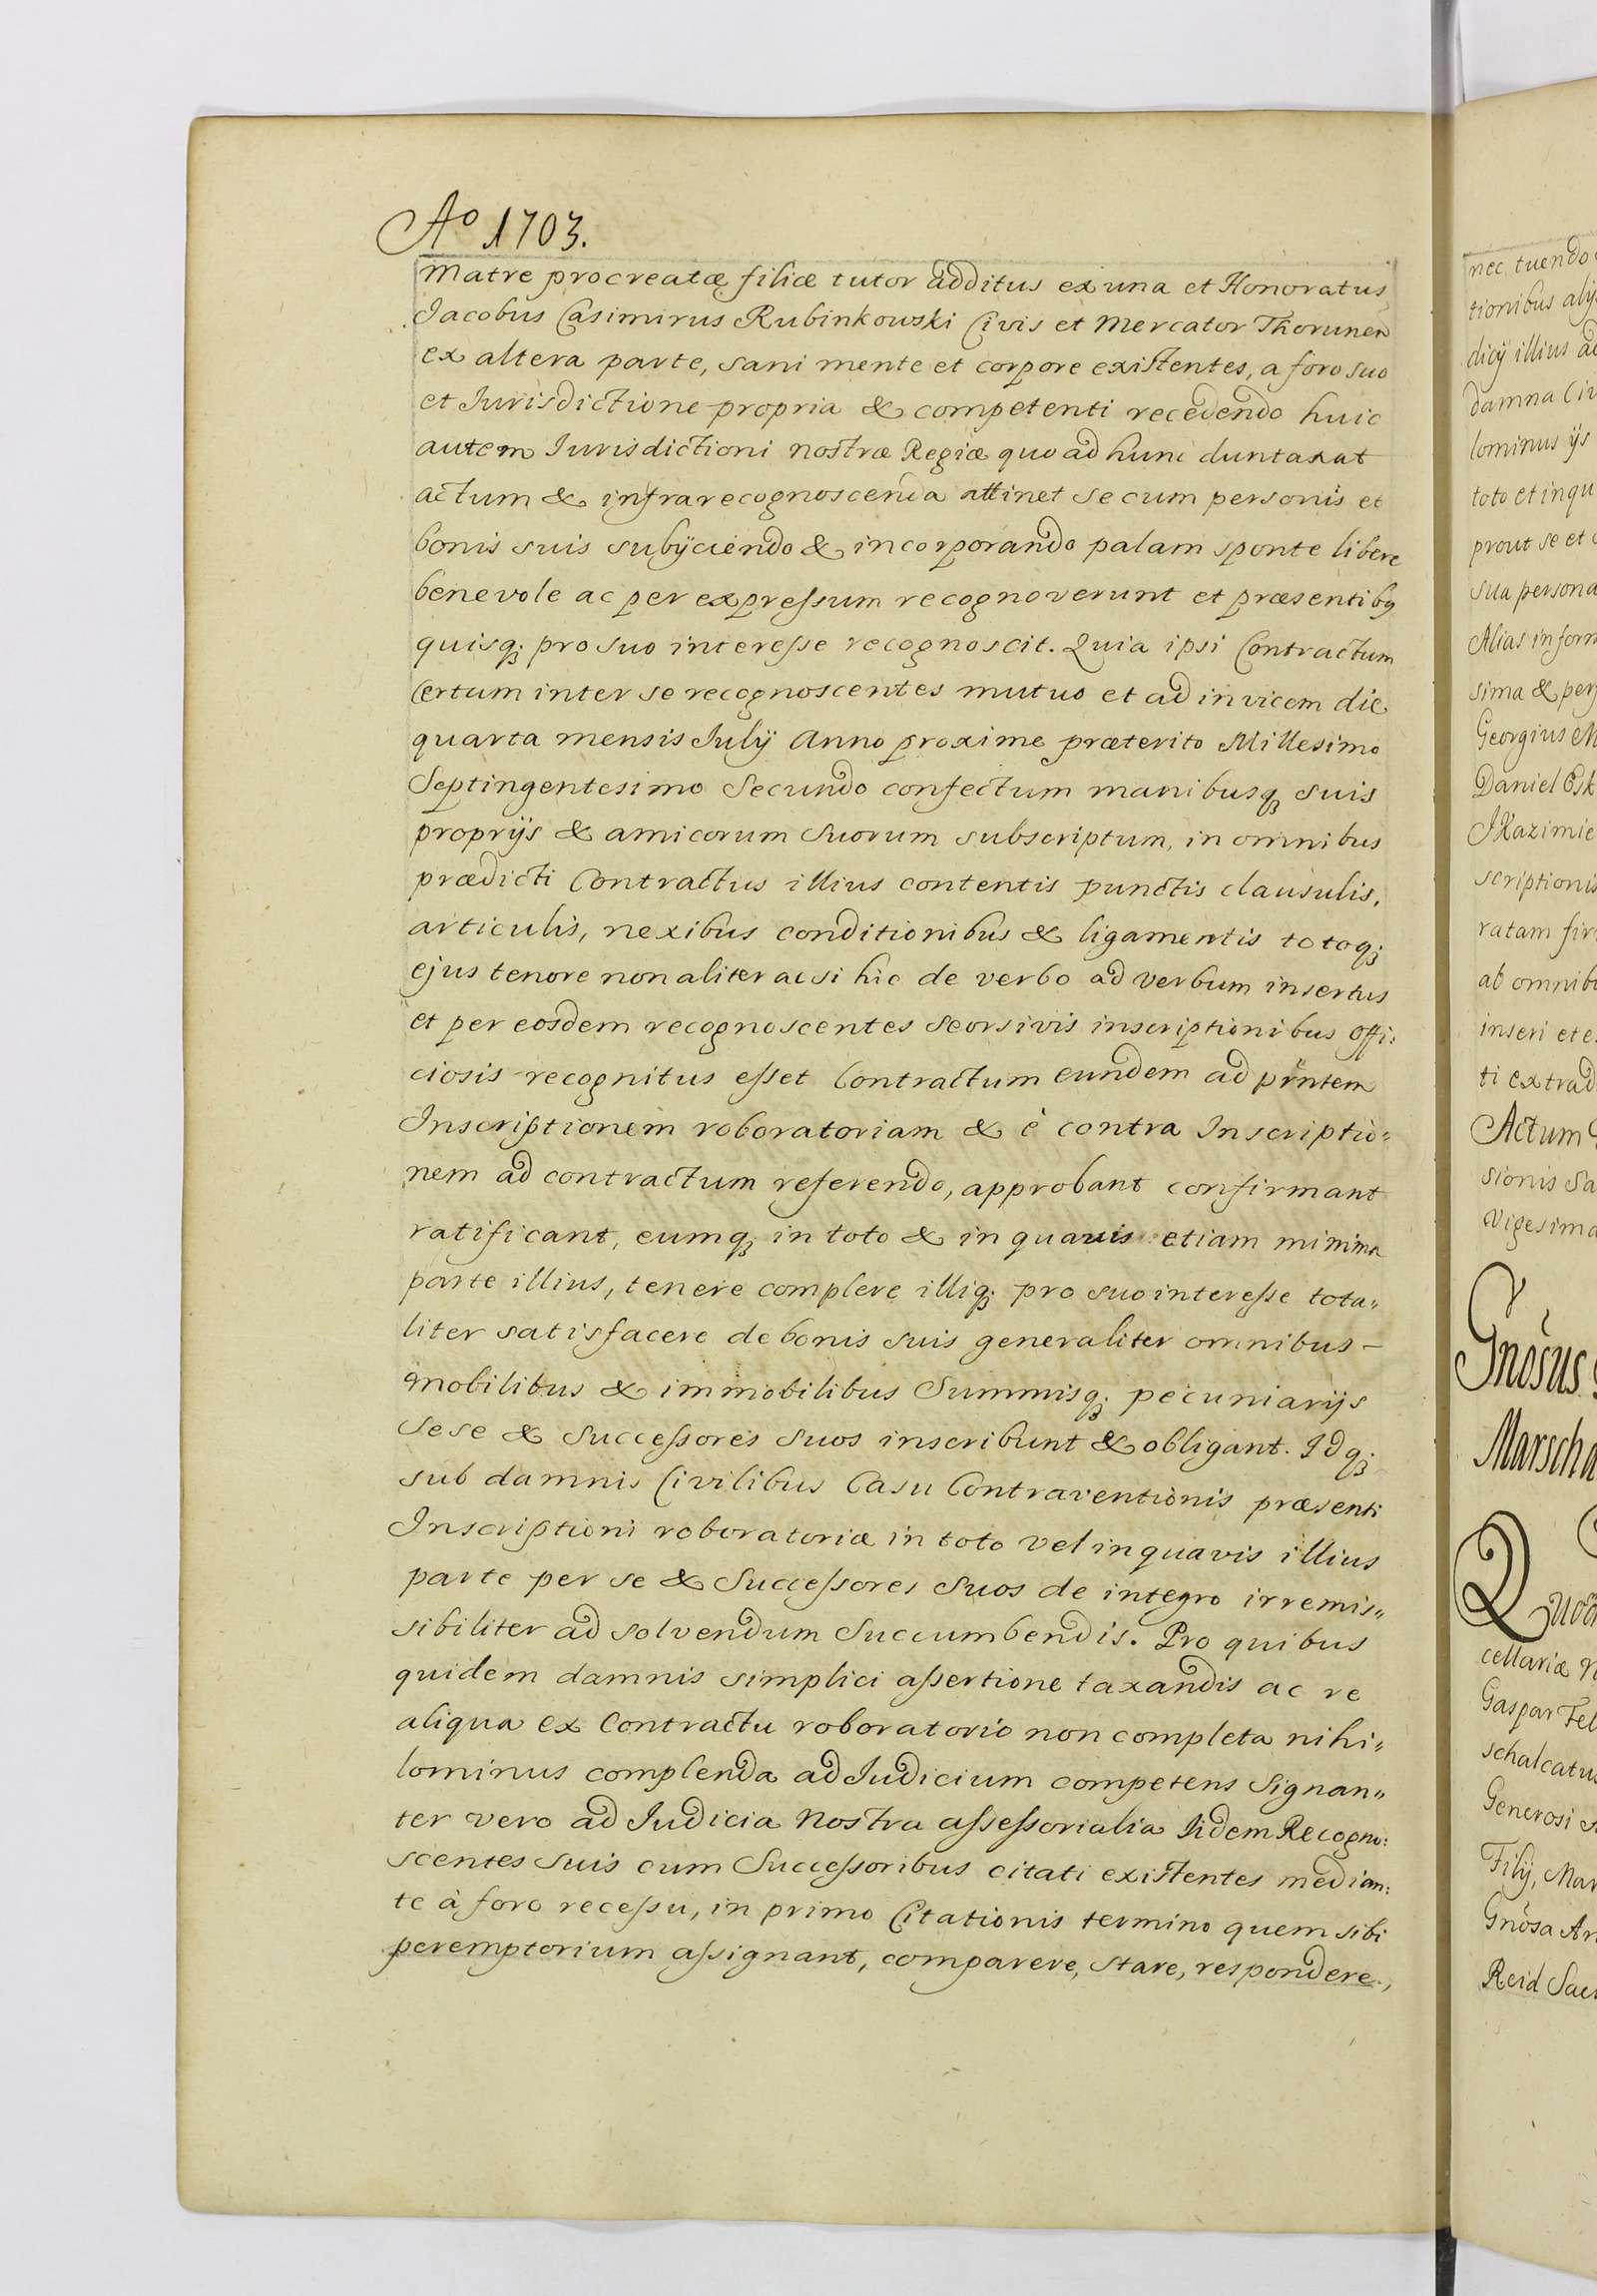 Ao 1703.
Matre procreatæ filiæ tutor additus ex una et Honoratus
Jacobus Casimirus Rubinkowski Civis et Mercator Thorunen
ex altera parte, sani mente et corpore existentes, a foro suo
et Jurisdictione propria & competenti recedendo huic
autem Jurisdictioni nostræ Regiæ quo ad hunc duntaxat
actum & infrarecognoscenda attinet se cum personis et
bonis suis subijciendo & incorporando palam sponte libere
benevole ac per expressum recognoverunt et præsentibq
quisq; pro suo interesse recognoscit. Quia ipsi Contractum
Certum inter se recognoscentes mutuo et ad invicem die
quarta mensis July Anno proxime præterito Millesimo
Septingentesimo Secundo confectum manibusq; suis
proprijs & amicorum Suorum subscriptum, in omnibus
prædicti Contractus illius contentis punctis clausulis,
articulis, nexibus conditionibus & ligamentis totoq;
ejus tenore non aliter ac si hic de verbo ad verbum insertus
et per eosdem recognoscentes seorsivis inscriptionibus offi:
ciosis recognitus esset Contractum eundem ad prñtem
Inscriptionem roboratoriam & è contra Inscriptio:
nem ad contractum referendo, approbant confirmant
ratificant, eumq; in toto & in quavis etiam minima
parte illius, tenere complere illiq; pro suo interesse tota„
liter satisfacere de bonis suis generaliter omnibus –
mobilibus & immobilibus Summisq; pecuniarijs
Sese & Successores Suos inscribunt & obligant. Idq;
sub damnis Civilibus Casu Contraventionis præsenti
Inscriptioni roboratoriæ in toto vel in quavis illius
parte per se & Successores Suos de integro irremis„
sibiliter ad solvendum Succumbendis. Pro quibus
quidem damnis simplici assertione taxandis ac re
aliqua ex Contractu roboratorio non completa nihi„
lominus complenda ad Judicium competens Signan„
ter vero ad Judicia Nostra assessorialia Iidem Recogno:
scentes Suis cum Successoribus citati existentes median:
te à foro recessu, in primo Citationis termino quem sibi
peremptorium assignant, comparere, stare, respondere,
nec tuendo
tionibus alij
dicij illius ad
damna Civ
lominus ijs
toto et in qu
prout se et
sua persona
Alias in form
sima & per
Georgius M
Daniel
JKazimie
scriptionis
ratam fir
ab omnib
inseri et e
ti extrad
Actum
sionis Sa
Vigesima
Gnosus
Marscha
Quod
cellariæ
Gaspar Fel
schalcatus
Generosi
Filij, Mar
Gnosa An
Reid Sac